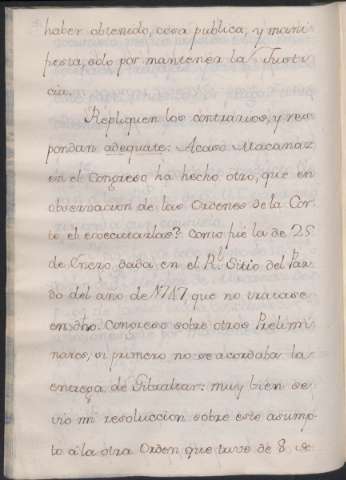 haber obtenido, cosa publica, y mani-
fiesta, solo por mantener la Justi-
cia.
Repliquen los contrarios, y res-
pondan adequate: Acaso Macanaz
en el Congreso ha hecho otro, que en
observacion de las Ordenes de la Cor-
te el executarlas? como fuè la de 25
de Enero dada en el Rl. Sitio del Par-
do del año de 1747, que no tratase
en dho. Congreso sobre otros Prelimi-
nares, si primero no se acordaba la
entrega de Gibraltar: muy bien se
vio mi resoluccion sobre este asump-
to â la otra Orden que tuve de 8 de